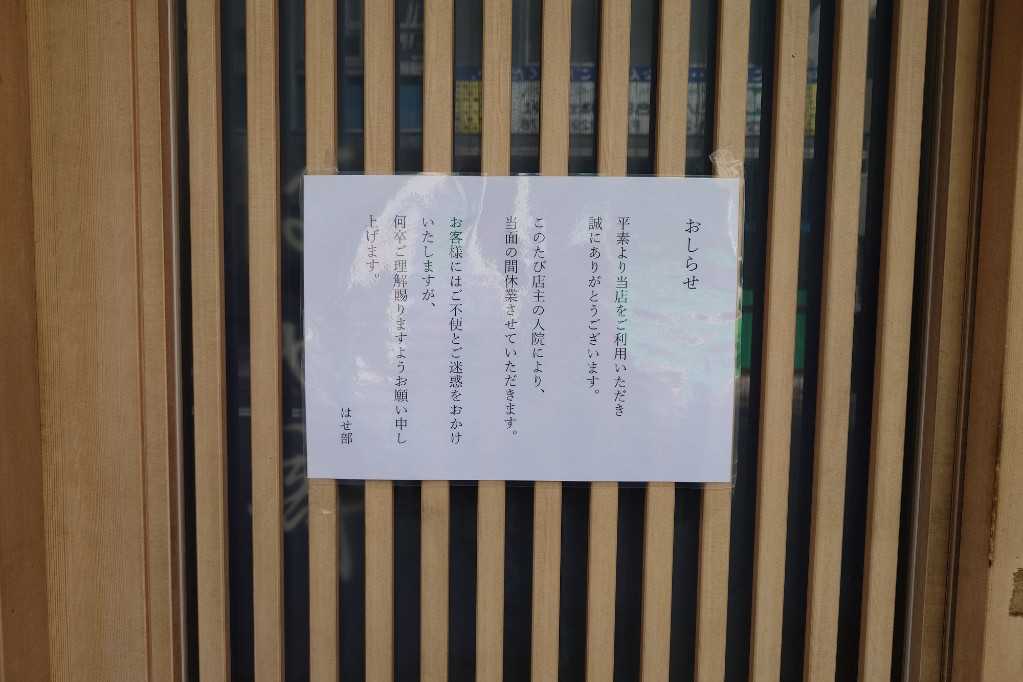 おしらせ
平素より当店をご利用いただき
誠にありがとうございます。
このたび店主の入院により、
当面の間休業させていただきます。
お客様にはご不便とご迷惑をおかけ
いたしますが、
何卒ご理解賜りますようお願い申し
上げます。
はせ部